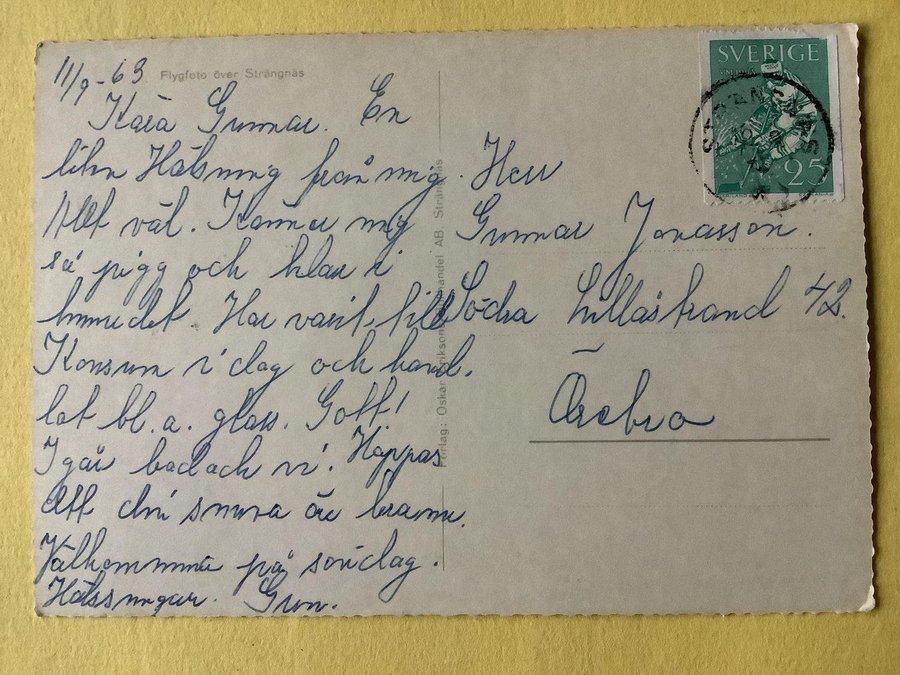 11/9-63. Flygfoto över Strängnäs
Kära Gunnar. En
liten Hälsning från mig.
Allt väl. Känner mig
så pigg och klar i
huvudet. Har varit till
Konsum i dag och hand.
lat bl.a. glass. Gott!
I går badade vi. Hoppas
att din snuva är
Välkommna på söndag.
Hälsningar. Gun.
Förlag: Oskar Erikson AB. Strängnäs
SVERIGE
25
STRÄNGNÄS
Herr
Gunnar Jonasson.
Södra Lillåstrand 42.
Örebro